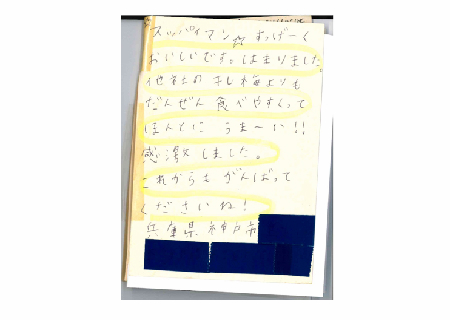 スッパイマン☆ すっげーく
おいしいです。はまりました。
他社の干し梅よりも
だんぜん食べやすくって
ほんとに うま〜い!!
感激しました。
これからも がんばって
くださいね!
兵庫県神戸市